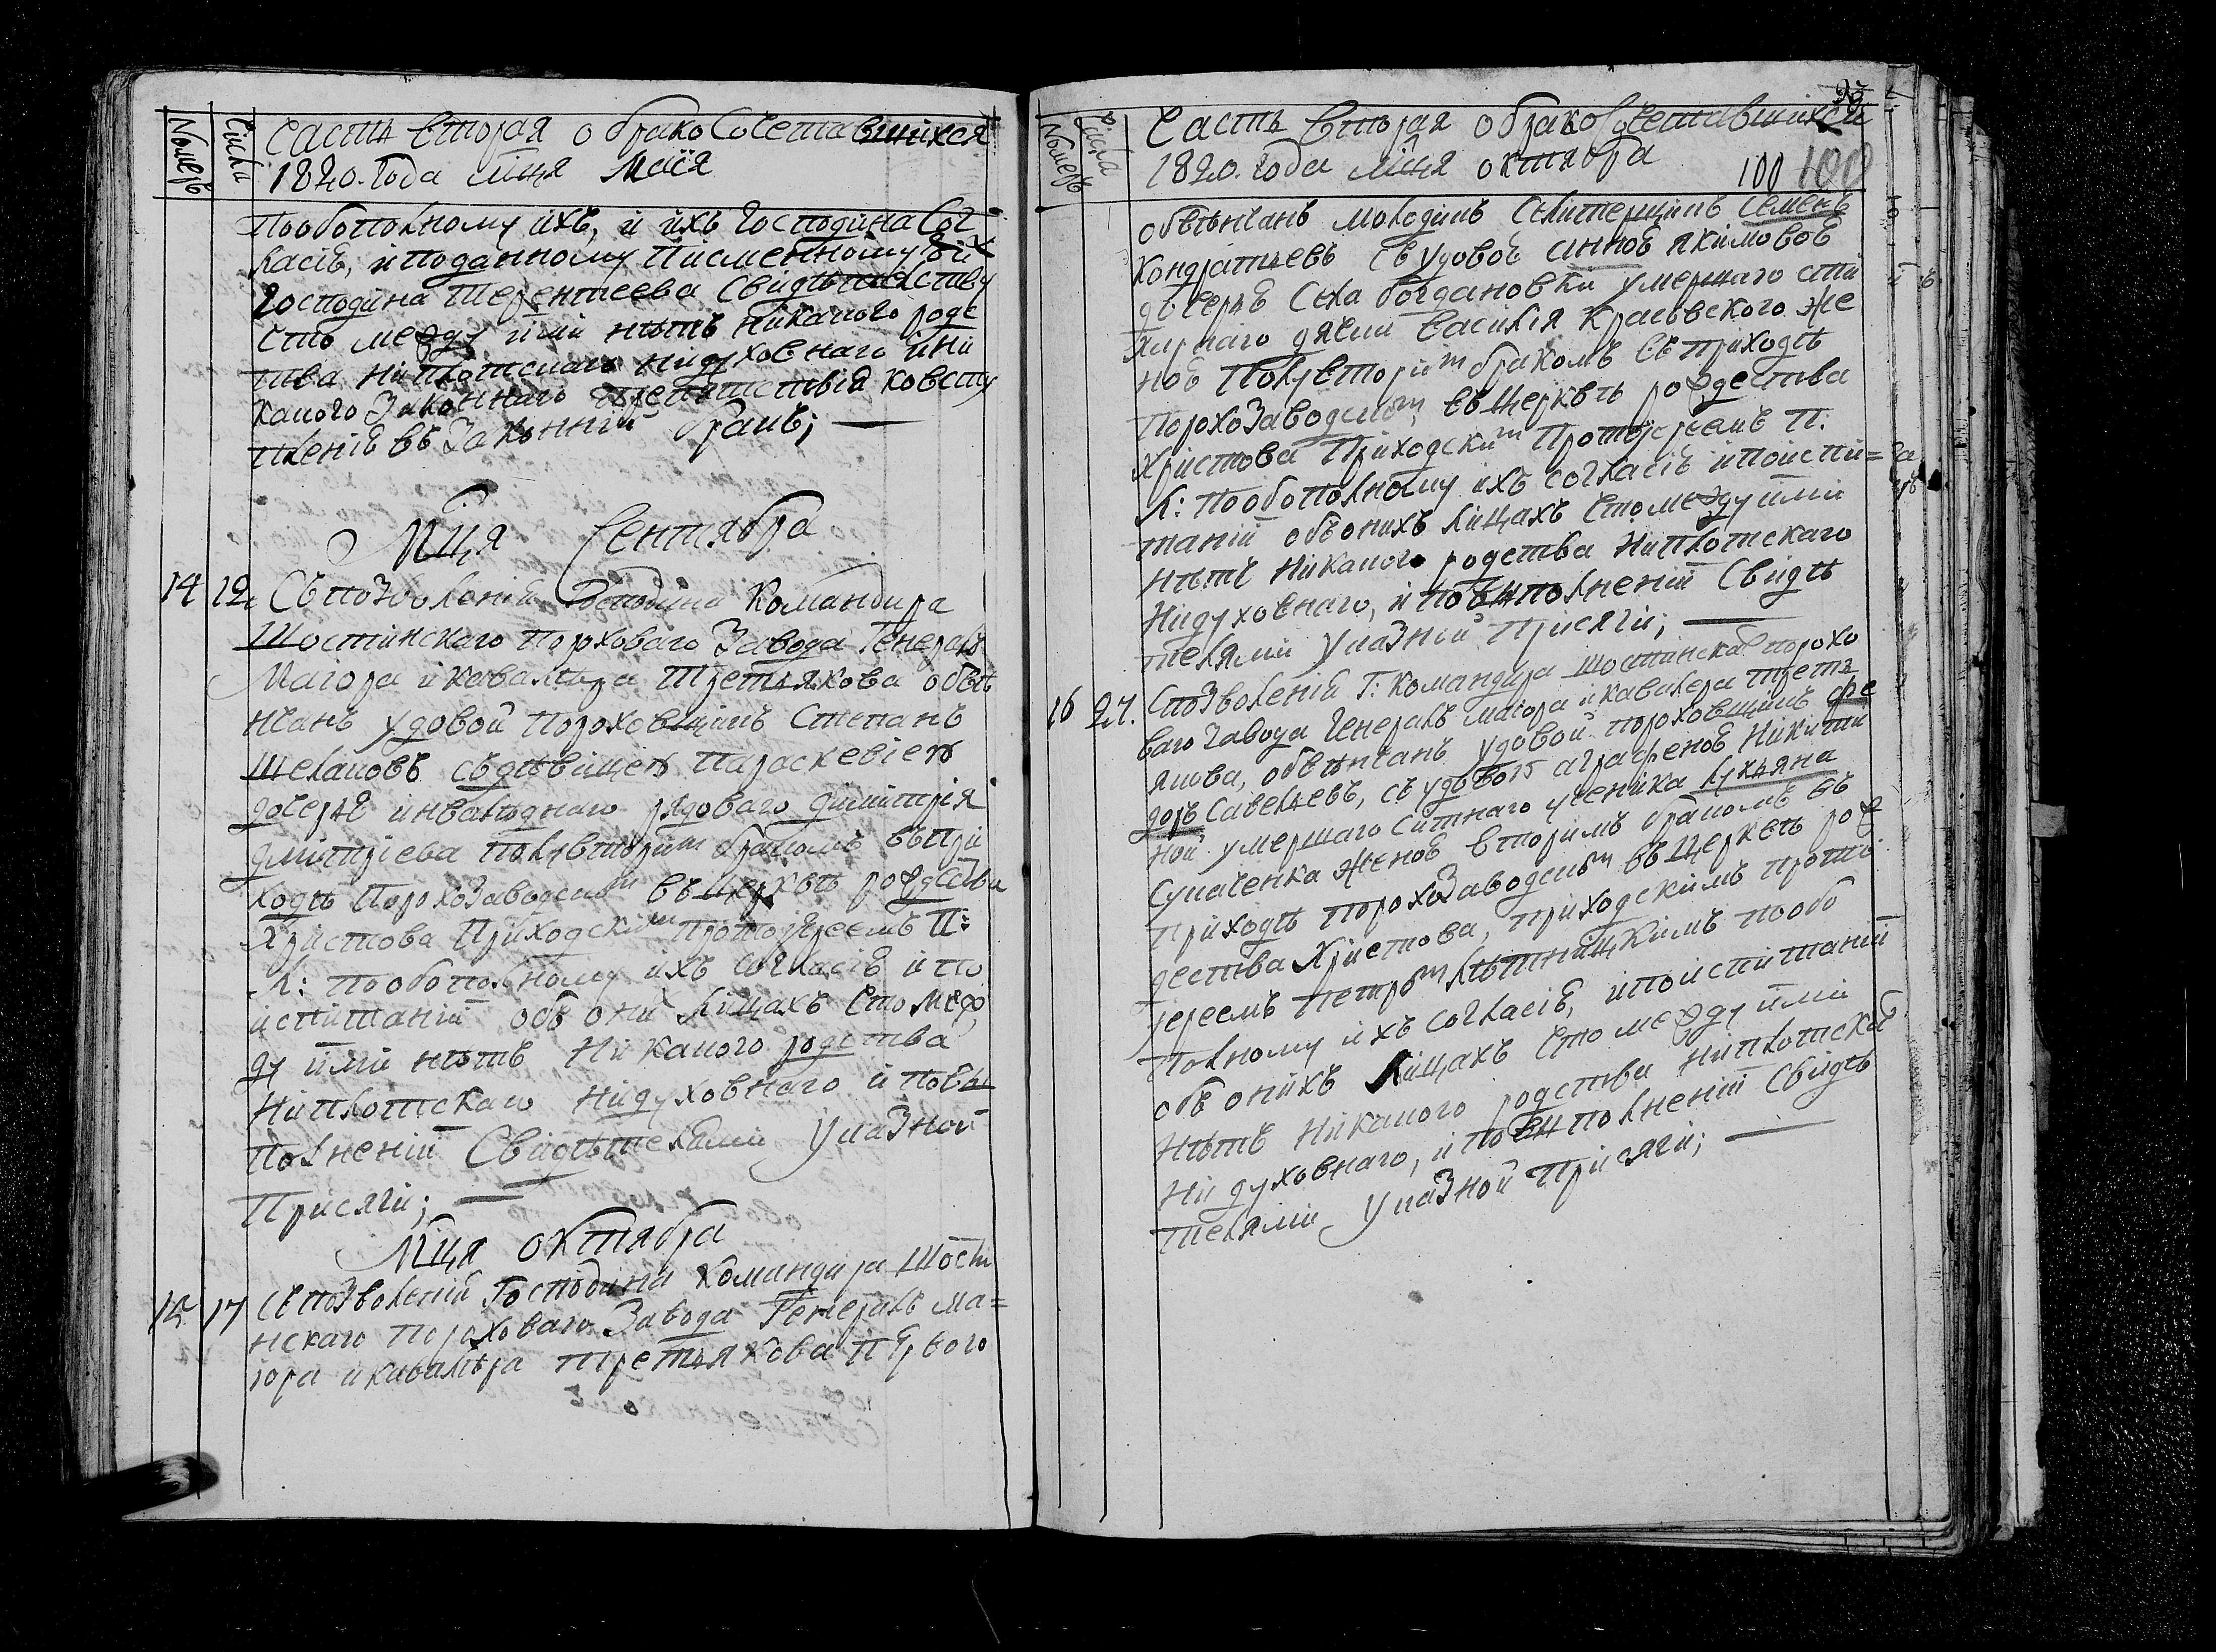 Номеръ
Числа
Часть вторая о бракосочетавшихся
1820. Года мца Маія
пообополному ихъ, и ихъ Господина Сог
ласіѣ, и поданному Писменному
Господина Терентеева Свидѣтелству
сто между ими нѣтъ никакого родс
тва ниплотскаго нидуховнаго ини
какого законнаго препятствія ковсту
пленіѣ въ Законній бракъ;
Мца Сентября
14 12 Съ позволенія Господина Командира
Шостинскаго Пороховаго Завода Генералъ
Маіора икавалѣра Третьякова обвѣ
нчанъ удовой пороховщикъ Степанъ
Шелаповъ съ дѣвицею Параскевіею
дочерью инвалиднаго рядоваго Димитрія
Дмитріева полувторим бракомъ въ при
ходѣ Порохозаводском въ церквѣ рождества
Христова Приходским Протоіереемъ П:
Л: пообополному ихъ согласіѣ и по
испитаніи объ оних лицахъ сто меж
ду ими нѣтъ никакого родства
Ниплотскаго нидуховнаго и по вы
полненіи Свидѣтелями Указной
Присяги;
Мца октября
15 17 Съ позволенія Господина Командира Шост
нскаго Пороховаго Завода Генералъ ма=
іора икавалѣра Третьякова первого
Номеръ
Числа
Часть Вторая о бракосочетавшихся
1820. года мца октября
100 100
обвѣнчанъ молодимъ Селитерщикъ Семенъ
Кондратьевъ съ удовоѣ Анноѣ Якимовоѣ
дочерьѣ Села Богдановки умершаго сти
хирнаго дячка Василія Краевского же
ноѣ полувторим бракомъ въ приходѣ
порохозаводском въ церквѣ рождества
Христова Приходским Протоіереемъ П:
Л: пообополному ихъ согласіѣ и поиспи=
таніи объонихъ лицахъ сто между ими
нѣтъ никакого родства Ниплотскаго
Нидуховнаго, и повыполненіи Свидѣ
телями указной Присяги;
16 27. Съ позволенія Г: Командира Шостинскаг порохо
ваго завода Генералъ маіора икавалера Треть
якова, обвѣнчанъ удовой пороховщикъ Фе
доръ Савельевъ, съ удовою Аграфеноѣ Никити
ной умершаго ситнаго ученика Лукьяна
Сукаченка женоѣ вторимъ бракомъ въ
приходѣ порохозаводском въ церквѣ рож
дества Христова, приходскимъ прото
іереемъ Петром Лѣтницкимъ пообо
полному ихъ согласіѣ, и поиспитаніи
объ онихъ лицахъ сто между ими
Нѣтъ никакого родства ниплотскаг
Ни духовнаго, и по выполненіи Свидѣ
телями указной Присяги;